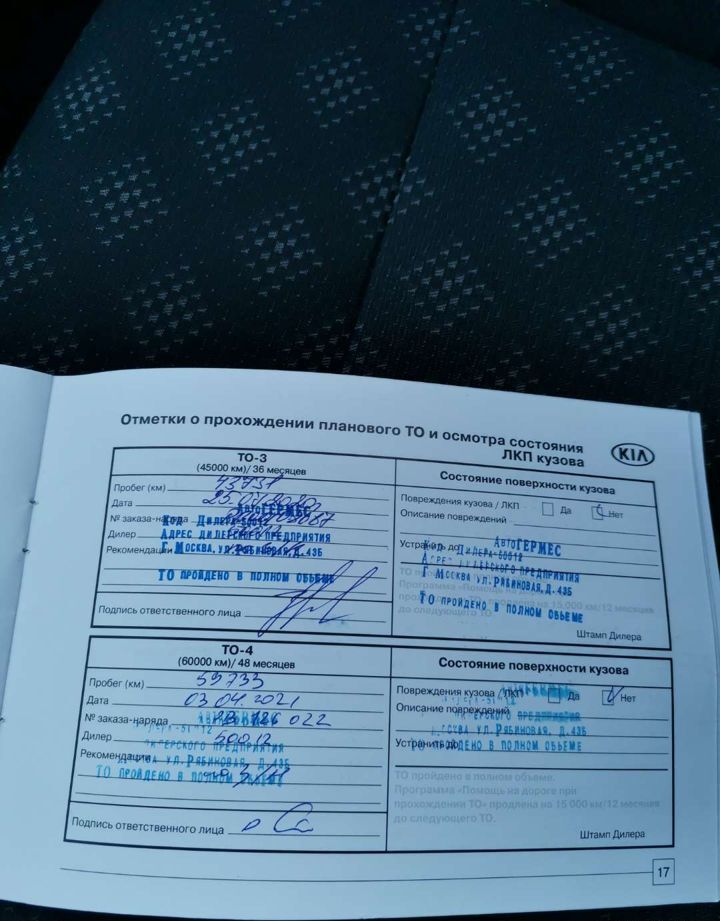 Отметки о прохождении планового ТО и осмотра состояния
ЛКП кузова
KIA
ТО-3
(45000 км)/ 36 месяцев
Пробег (км) 43731
Дата
№ заказа-наряда
Дилер
Рекомендации
АвтоГЕРМЕС
Код Дилера-50012
Адрес дилерского предприятия
г. Москва, ул. Рябиновая, д.43Б
ТО пройдено в полном объеме
Подпись ответственного лица
Состояние поверхности кузова
Повреждения кузова / ЛКП Да Нет
Описание повреждений
Устранить до
АвтоГЕРМЕС
Код Дилера-50012
Адрес дилерского предприятия
г. Москва ул. Рябиновая, д.43Б
ТО пройдено в полном объеме
Программа «Помощь на дороге при
прохождении ТО» продлена на 15 000 км/12 месяцев
до следующего ТО.
Штамп Дилера
ТО-4
(60000 км)/ 48 месяцев
Пробег (км) 59733
Дата 03.04.2021
№ заказа-наряда 022
Дилер 50012
Рекомендации
дилерского предприятия
ул. Рябиновая, д.43Б
ТО пройдено в полном объеме
Подпись ответственного лица
Состояние поверхности кузова
Повреждения кузова / ЛКП Да Нет
Описание повреждений
дилерского предприятия
Москва ул. Рябиновая, д.43Б
Устранить до
ТО пройдено в полном объеме
ТО пройдено в полном объеме.
Программа «Помощь на дороге при
прохождении ТО» продлена на 15 000 км/12 месяцев
до следующего ТО.
Штамп Дилера
17